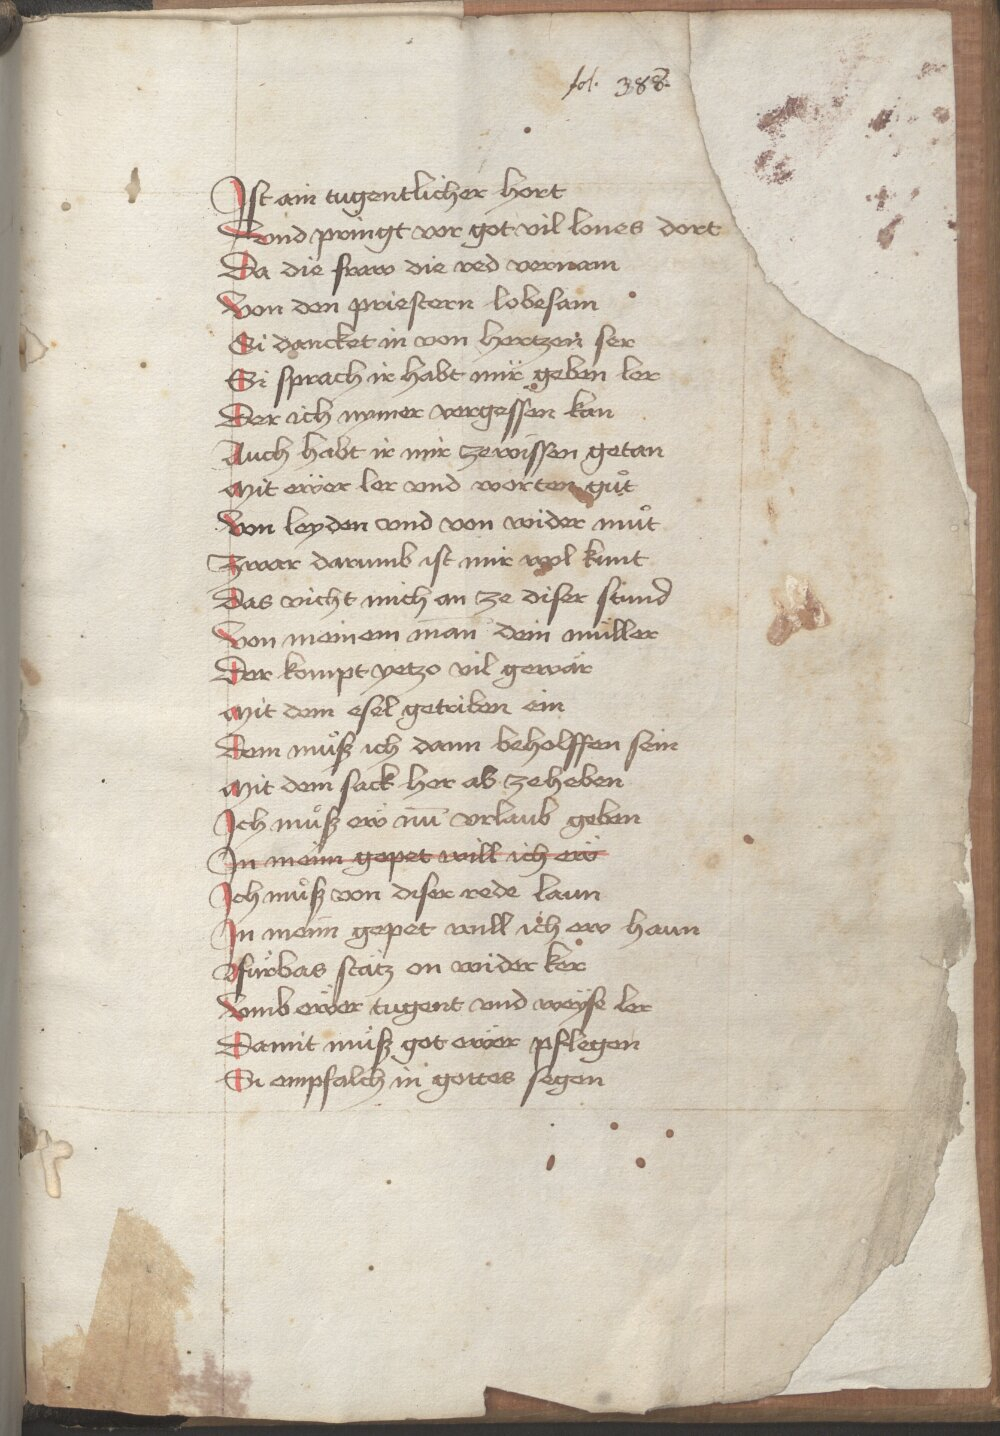 fol. 388.
Ist ain tugentlicher hort
Vnd pringt vor got vil lones dort
Da die fraw die red vernam
Von den priestern lobesam
Si dancket in von hertzen ser
Si sprach ir habt mir geben ler
Der ich nymer vergessen kan
Auch habt ir mir zewissen getan
Mit ewer ler vnd worten guͦt
Von leyden vnd von wider muͦt
Zwar darumb ist mir wol kunt
Das vicht mich an ze diser stund
Von meinem man dem müller
Der kompt yetzo vil gewär
Mit dem esel getriben ein
Dem muͦß ich dann beholffen sein
Mit dem sack her ab zeheben
Ich muͦß ew nu̅ vrlaub geben
In meim gepet will ich ew
Ich muͦß von diser rede laun
In meim gepet will ich ew haun
Fürbas stätz on wider ker
Vmb ewer tugent vnd weyse ler
Damit muͦß got ewer pflegen
Si empfalch in gottes segen